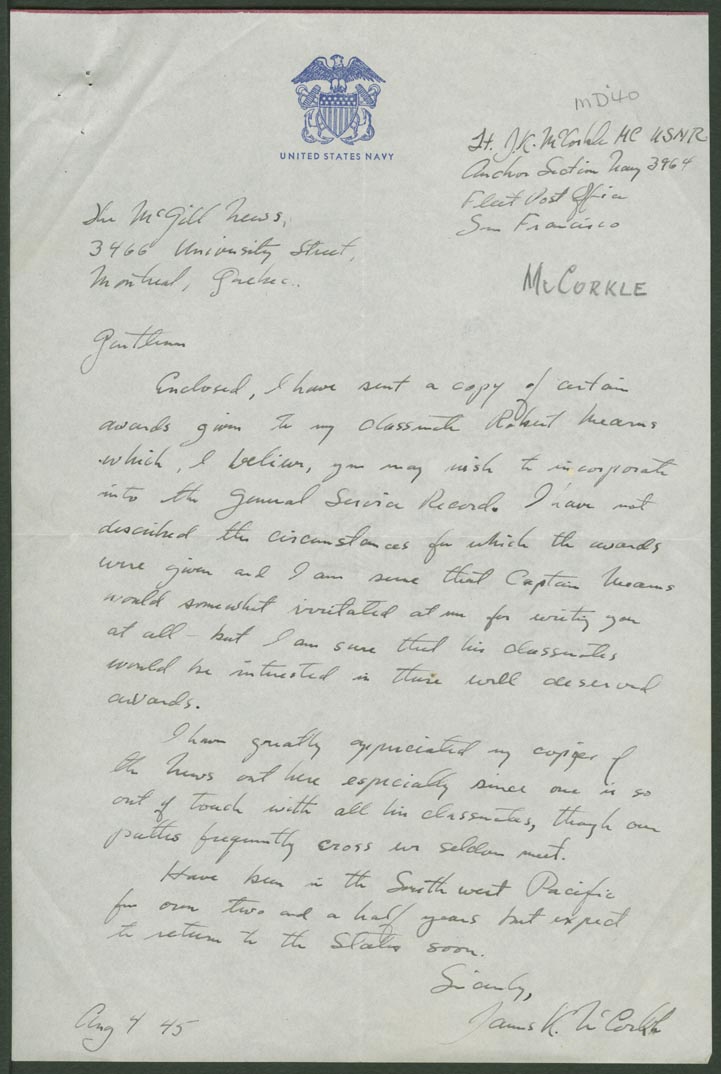 UNITED STATES NAVY
MD'40
Lt. J.K. McCorkle MC USNR
Anchor Section Navy 3964
Fleet Post Office
San Francisco
The McGill News,
3466 University Street,
Montreal, Quebec.
McCORKLE
Gentlemen
Enclosed, I have sent a copy of certain
awards given to my classmate Robert Mearns
which, I believe, you may wish to incorporate
into the General Service Record. I have not
described the circumstances for which the awards
were given and I am sure that Captain Mearns
would somewhat irritated at me for writing you
at all – but I am sure that his classmates
would be interested in these well deserved
awards.
I have greatly appreciated my copies of
the News out here especially since one is so
out of touch with all his classmates, though our
paths frequently cross we seldom meet.
Have been in the South west Pacific
for over two and a half years but expect
to return to the States soon.
Sincerely,
James K. McCorkle
Aug 4 45